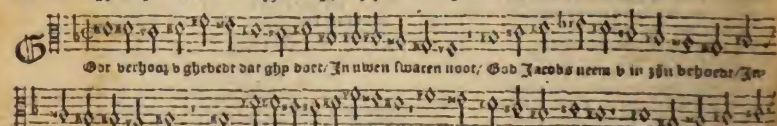 God verhooꝛ v ghebedt dat ghy doet/ In uwen swaren noot/ God Jacobs neem v in zijn behoedt/ In